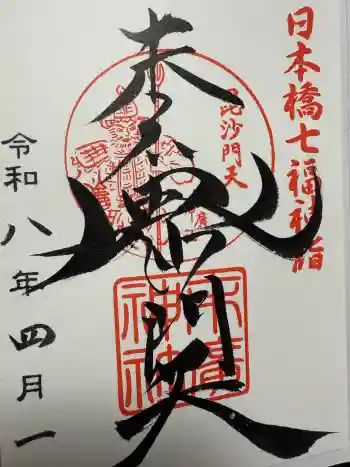 日本橋七福神詣
毘沙門天
奉拝
毘沙門天
末廣神社
令和八年四月一